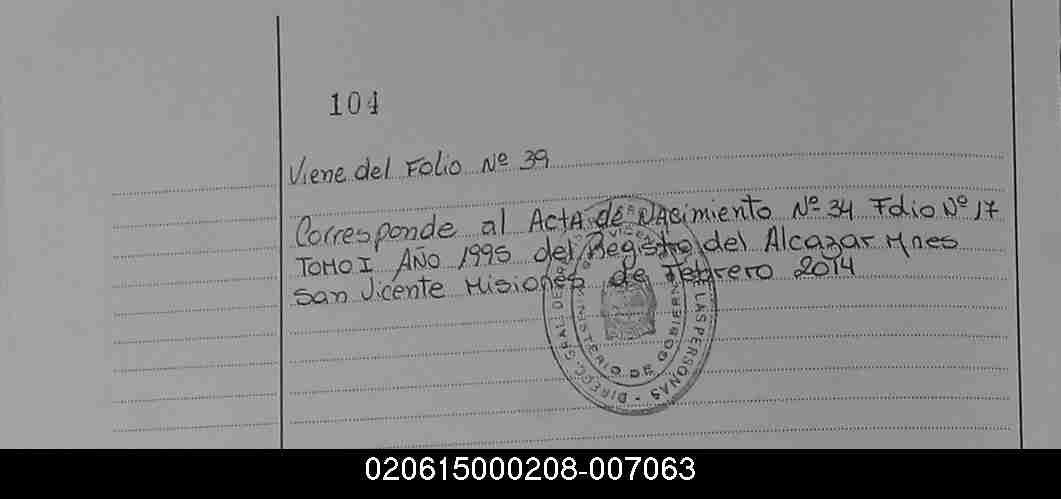 104
Viene del Folio Nº 39
Corresponde al Acta de Nacimiento Nº 34 Folio Nº 17
TOMO I AÑO 1995 del Registro del Alcazar Mnes
San Vicente Misiones de Febrero 2014
DIRECC. GRAL. DE LAS PERSONAS
MINISTERIO DE GOBIERNO
020615000208-007063